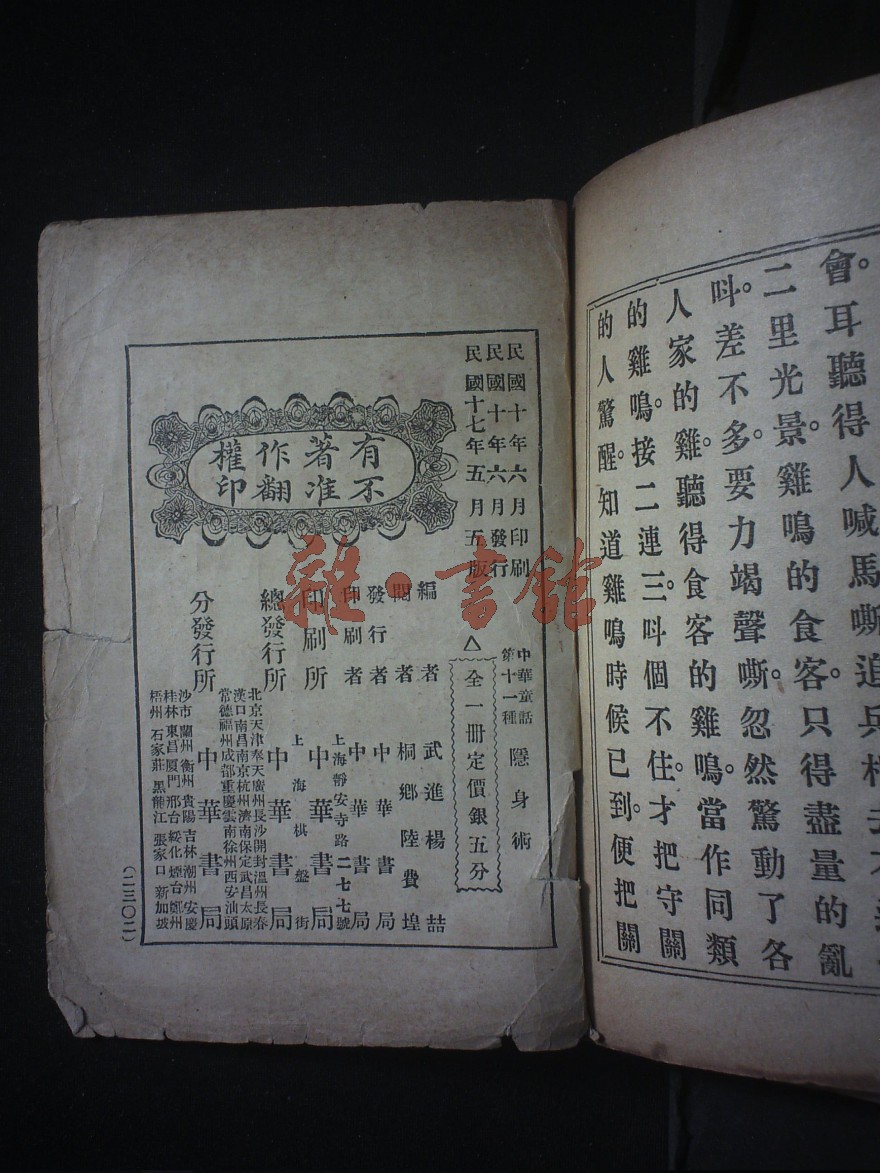 會。耳聽得人喊馬嘶追兵
二里光景。雞鳴的食客。只得盡量的亂
叫。差不多。要力竭聲嘶。忽然驚動了各
人家的雞。聽得食客的雞鳴。當作同類
的雞鳴。接二連三。叫個不住。才把守關
的人驚醒。知道雞鳴時候已到。便把關
民國十年六月印刷
民國十年六月發行
民國十七年五月五版
中華童話
第十一種
隱身術
△全一冊定價銀五分
有不
著准
作翻
權印
編者 武進楊喆
閱者 桐鄉陸費堭
發行者 中華書局
印刷者 中華書局
印刷所 上海靜安寺路二七七號
中華書局
總發行所 上海棋盤街
中華書局
分發行所 中華書局
北京天津奉天廣州長沙開封溫州長春
漢口南昌南京杭州濟南保定武昌太原
常德福州成都重慶雲南徐州西安汕頭
沙市蘭州衡州貴陽吉林潮州安慶
桂林東昌廈門邢台綏化煙台鄭州
梧州石家莊黑龍江張家口新加坡
(二三〇二)
雜·書館